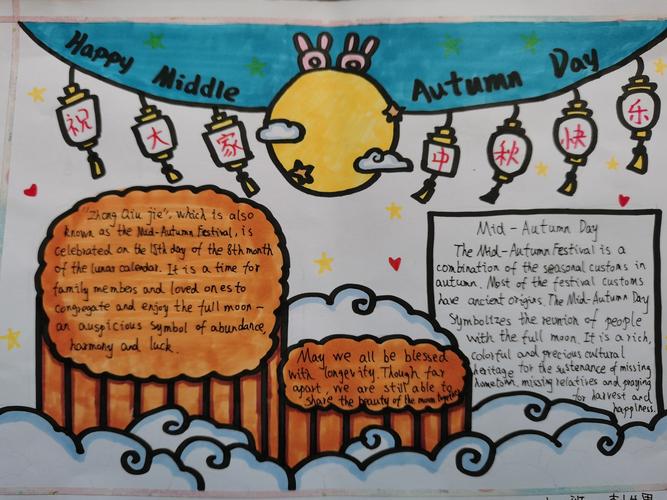 Happy Middle Autumn Day
祝大家中秋快乐
"Zhong Qiu jie", which is also
known as the Mid-Autumn Festival, is
celebrated on the 15th day of the 8th month
of the lunar calendar. It is a time for
family members and loved ones to
congregate and enjoy the full moon -
an auspicious symbol of abundance,
harmony and luck.
May we all be blessed
with longevity. Though far
apart, we are still able to
share the beauty of the moon together
Mid-Autumn Day
The Mid-Autumn Festival is a
combination of the seasonal customs in
autumn. Most of the festival customs
have ancient origins. The Mid-Autumn Day
symbolizes the reunion of people
with the full moon. It is a rich,
colorful and precious cultural
heritage for the sustenance of missing
hometown, missing relatives and praying
for harvest and
happiness.